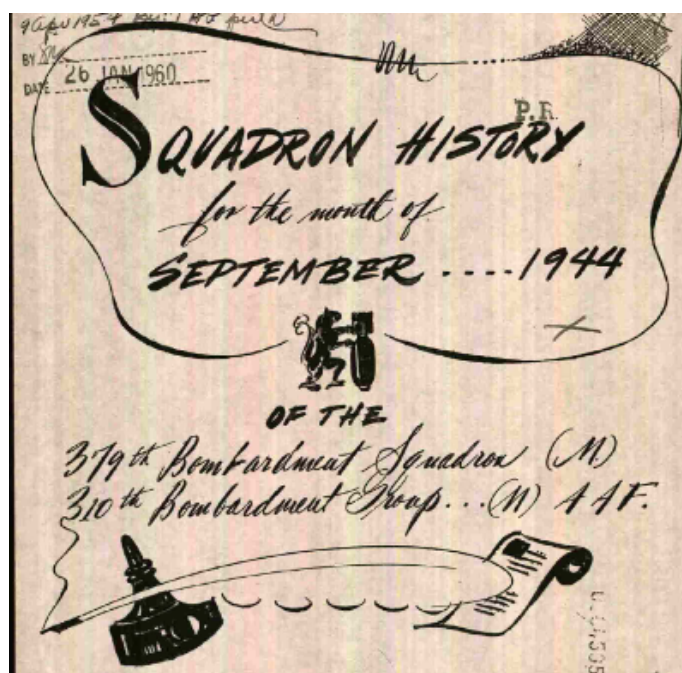 9 Apr 1957
BY
DATE 26 JAN 1960
P.R.
SQUADRON HISTORY
for the month of
SEPTEMBER ....1944
OF THE
379th Bombardment Squadron (M)
310th Bombardment Group...(M) AAF.